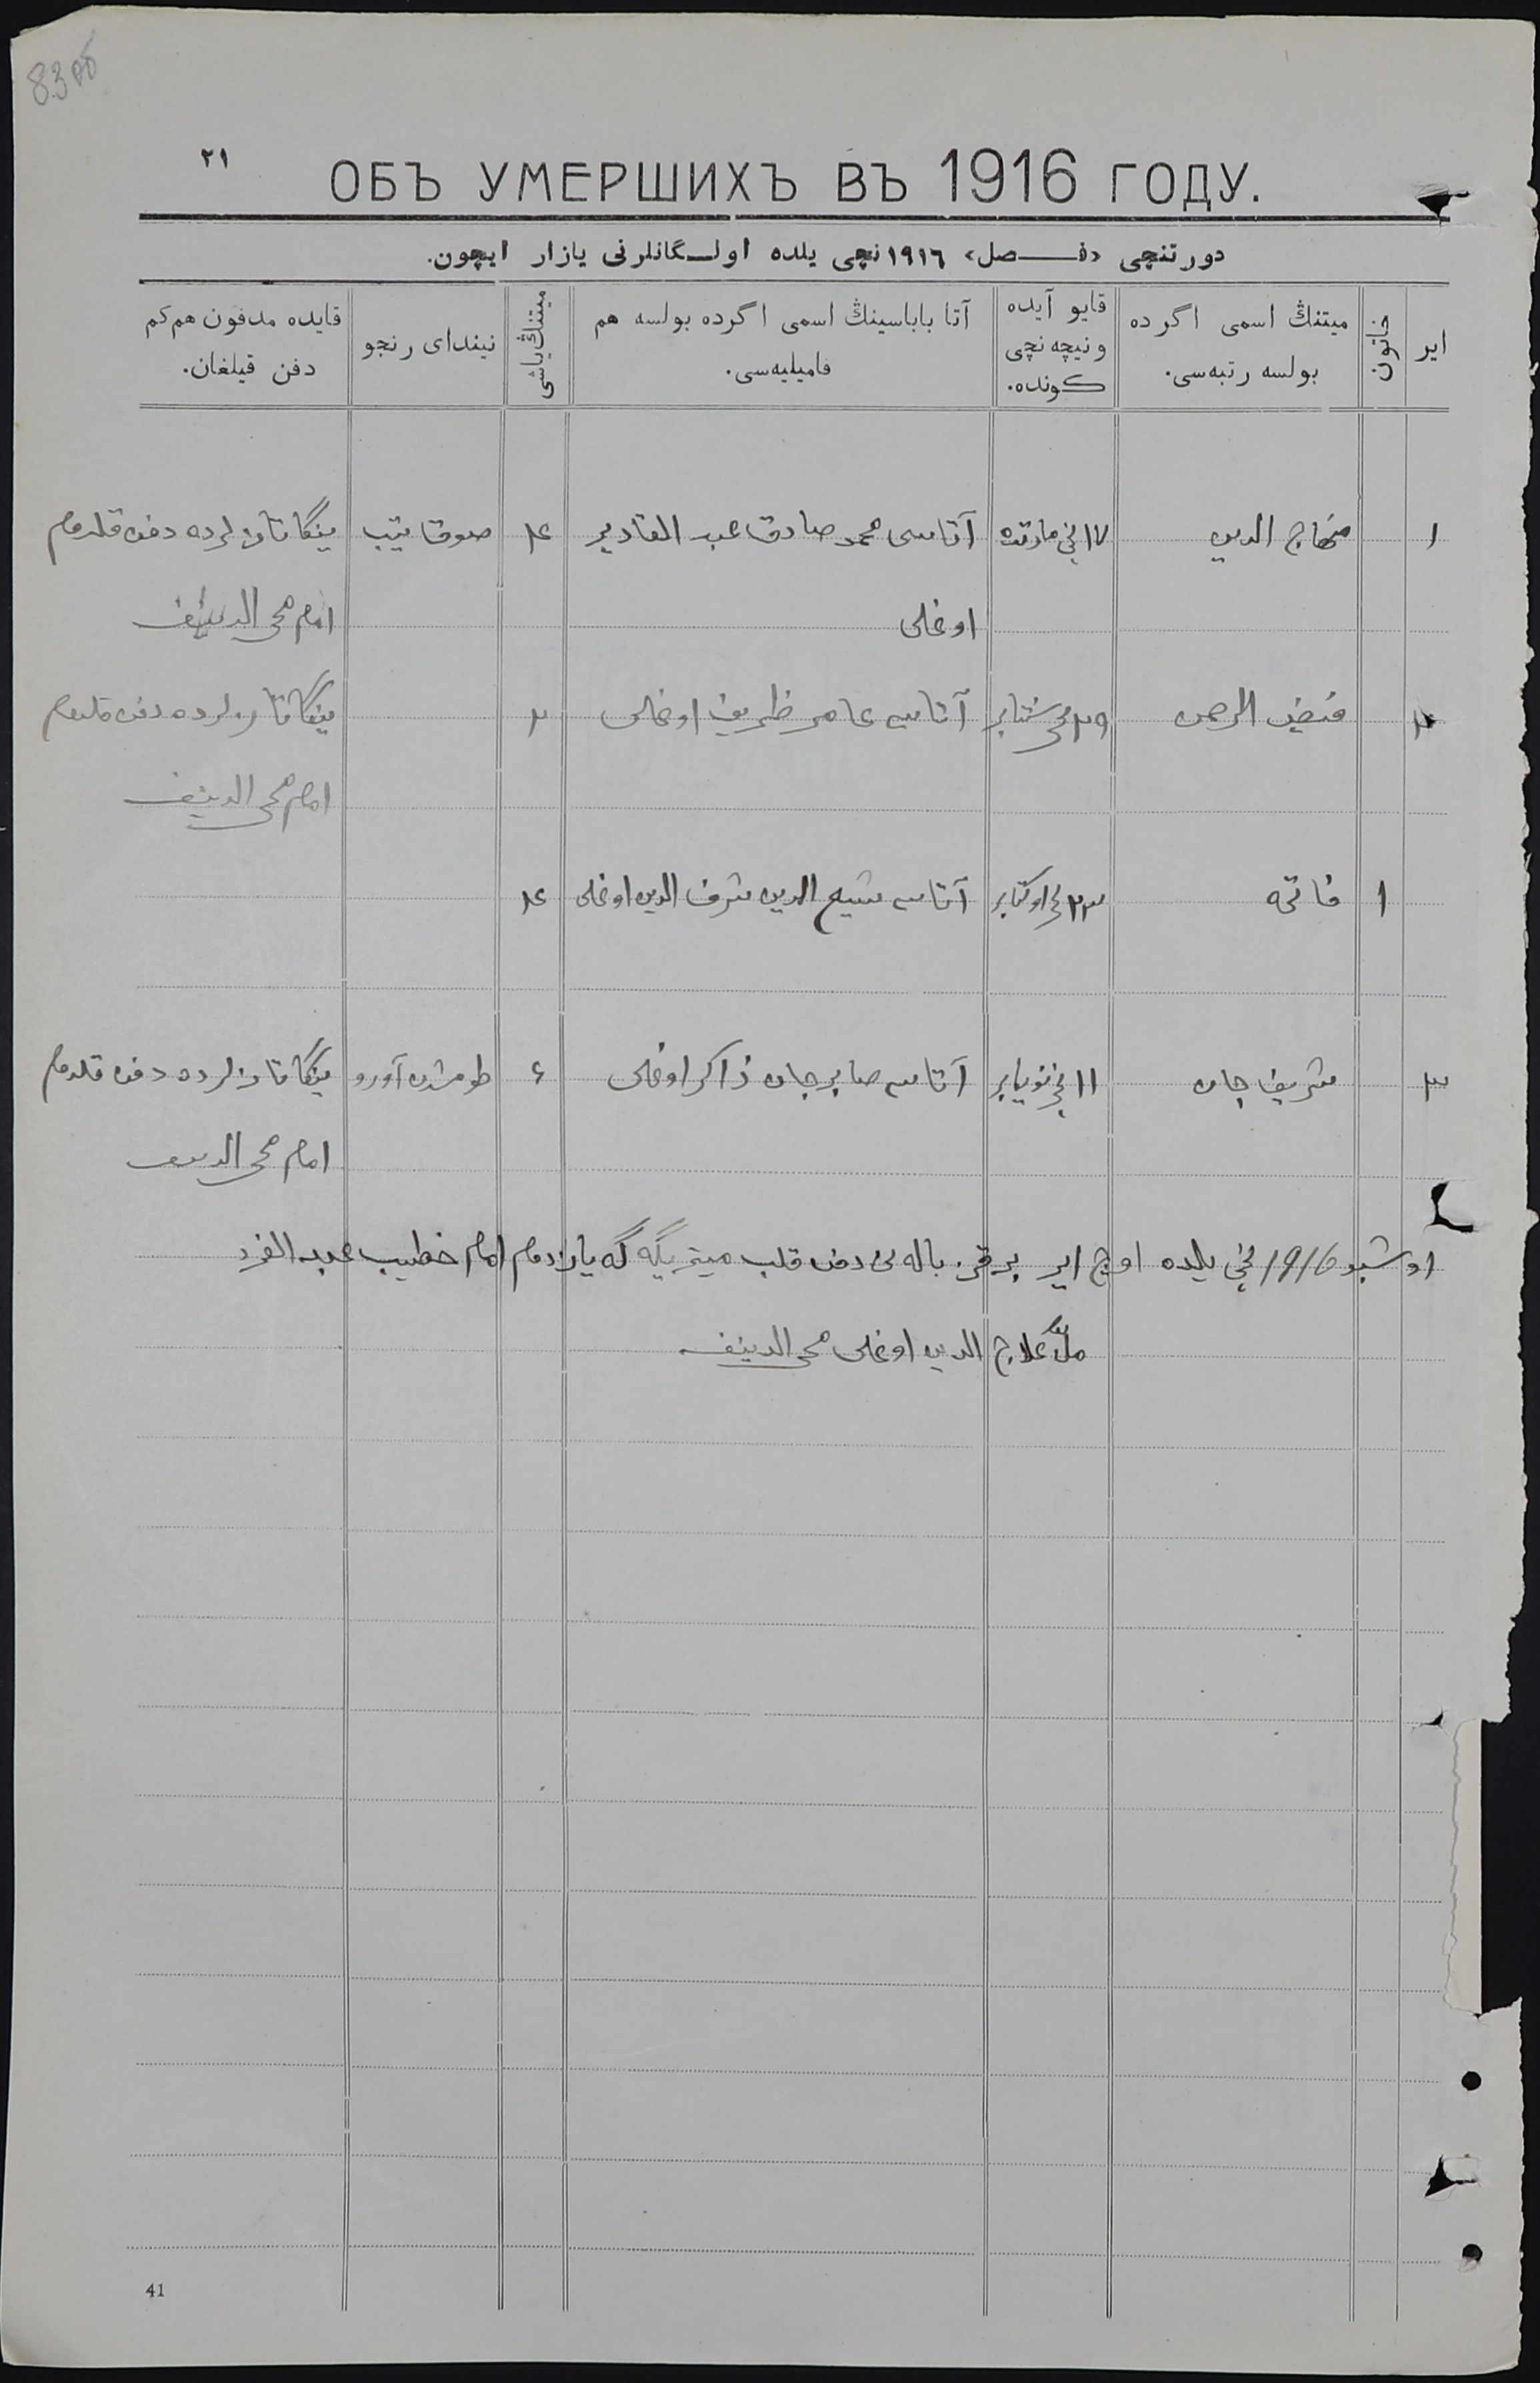 83 об
٢١
ОБЪ УМЕРШИХЪ ВЪ 1916 ГОДУ.
دورتنچی «فـصل» ١٩١٦ نچی یلده اولـگانلرنی یازار ایچون.
ایر
خاتون
میتنڭ اسمی اگر ده بولسه رتبه‌سی.
قایو آیده ونیچه نچی کونده.
آتا باباسینڭ اسمی اگرده بولسه هم فامیلیه‌سی.
میتنڭ یاشی
نیندای رنجو
قایده مدفون هم کم دفن قیلغان.
١ منهاج الدین ١٧ نچی مارتده آتاسی محمد صادق عبد القادیر صوقا یتیب ینگا تازلرده دفن قلدم
اوغلی امام محی الدینف
٢ فیض الرحمن ٢٩ نچی سنتابر آتاسی عامر ظریف اوغلی ٢ ینگا تازلرده دفن قلدم
امام محی الدینف
١ ٢٣ نچی اوکتابر آتاسی شیخ الدین شرف الدین اوغلی
٣ شریف جان ١١ نچی نویابر آتاسی صابر جان ذاکر اوغلی ٤ ینگا تازلرده دفن قلدم
امام محی الدینف
اوشبو 1916 نچی یلده اوچ ایر بر قز باله نی دفن قلب میتریگه گه یازدم امام خطیب
ملا علاج الدین اوغلی محی الدینف
41